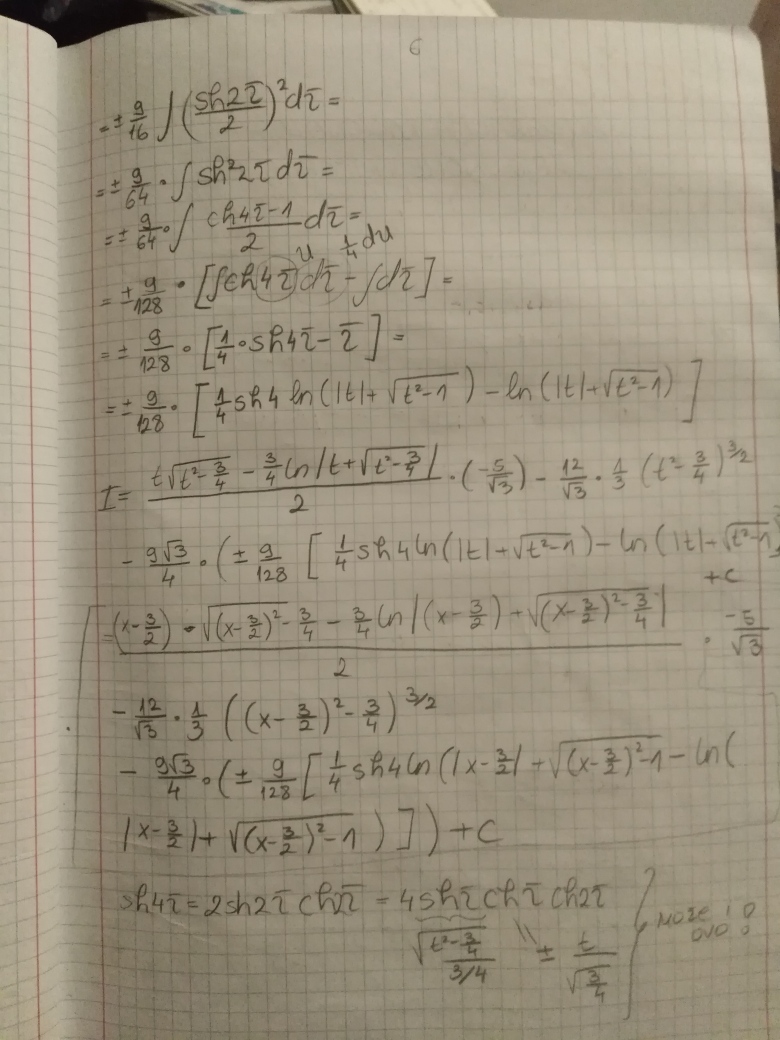 6
= ± 9/16 ∫ (sh2τ/2)² dτ =
= ± 9/64 • ∫ sh²2τ dτ =
= ± 9/64 • ∫ (ch4τ-1)/2 dτ =
u 1/4 du
= ± 9/128 • [∫ch4τ dτ - ∫dτ] =
= ± 9/128 • [1/4 • sh4τ - τ] =
= ± 9/128 • [1/4 sh4 ln(|t| + √(t²-1)) - ln(|t| + √(t²-1))]
I = (t√(t²-3/4) - 3/4 ln|t + √(t²-3/4)|)/2 • (-5/√3) - 12/√3 • 1/3 (t²-3/4)^3/2
- 9√3/4 • (± 9/128 [1/4 sh4 ln(|t| + √(t²-1)) - ln(|t| + √(t²-1)
+ C
= ((x-3/2) • √((x-3/2)²-3/4) - 3/4 ln|(x-3/2) + √((x-3/2)²-3/4)|)/2 • -5/√3
- 12/√3 • 1/3 ((x-3/2)²-3/4)^3/2
- 9√3/4 • (± 9/128 [1/4 sh4 ln(|x-3/2| + √((x-3/2)²-1) - ln(
|x-3/2| + √((x-3/2)²-1))]) + C
sh4τ = 2sh2τ ch2τ = 4shτ chτ ch2τ
√((t²-3/4)/(3/4)) ± t/√(3/4)
može i
ovo!